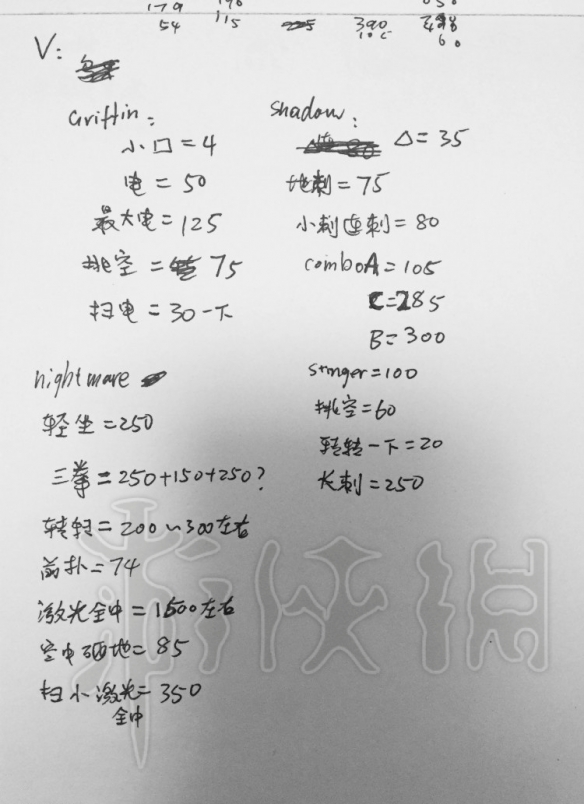 179
54
115
390
60
V:
Griffin:
小口=4
电=50
最大电=125
挑空=75
扫电=30一下
Shadow:
△=35
地刺=75
小刺连刺=80
comboA=105
C=285
B=300
stinger=100
挑空=60
转转一下=20
长刺=250
nightmare
轻坐=250
三拳=250+150+250?
转转=200~300左右
前扑=74
激光全中=1500左右
空中砸地=85
扫小激光=350
全中